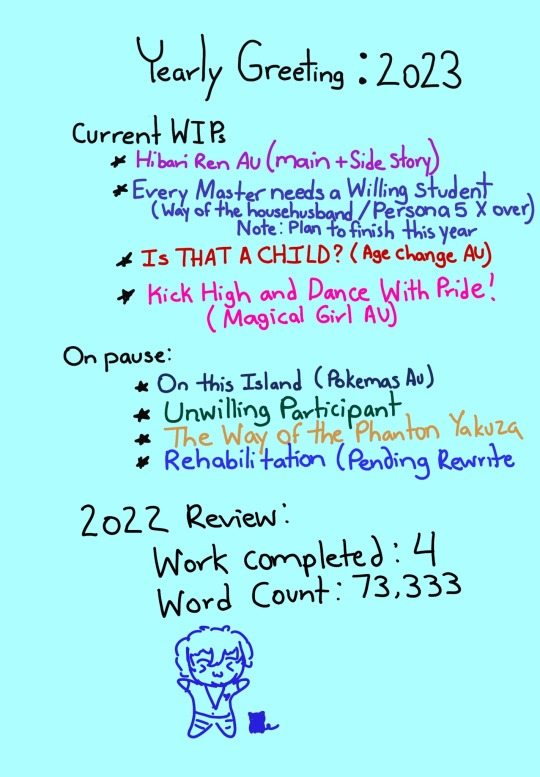 Yearly Greeting: 2023
Current WIPs
* Hibari Ren AU (main + Side Story)
* Every Master needs a Willing Student
(Way of the househusband / Persona 5 X over)
Note: Plan to finish this year
* Is THAT A CHILD? (Age change AU)
* Kick High and Dance With Pride!
(Magical Girl AU)
On pause:
* On this Island (Pokemas AU)
* Unwilling Participant
* The Way of the Phanton Yakuza
* Rehabilitation (Pending Rewrite
2022 Review:
Work completed: 4
Word Count: 73,333